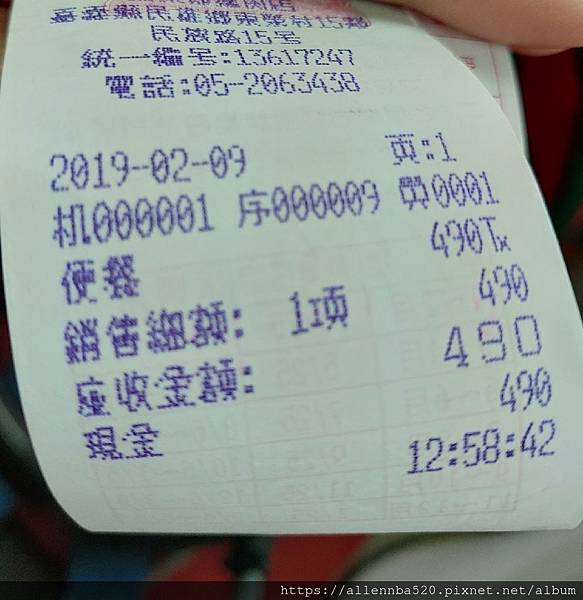 嘉義縣民雄鄉東榮村15鄰
民族路15号
統一編号:13617247
電話:05-2063438
2019-02-09 頁:1
机000001 序000009 員0001
490Tx
便餐
490
銷售細額: 1項
490
應收金額:
490
現金
12:58:42
https://allennba520.pixnet.net/album